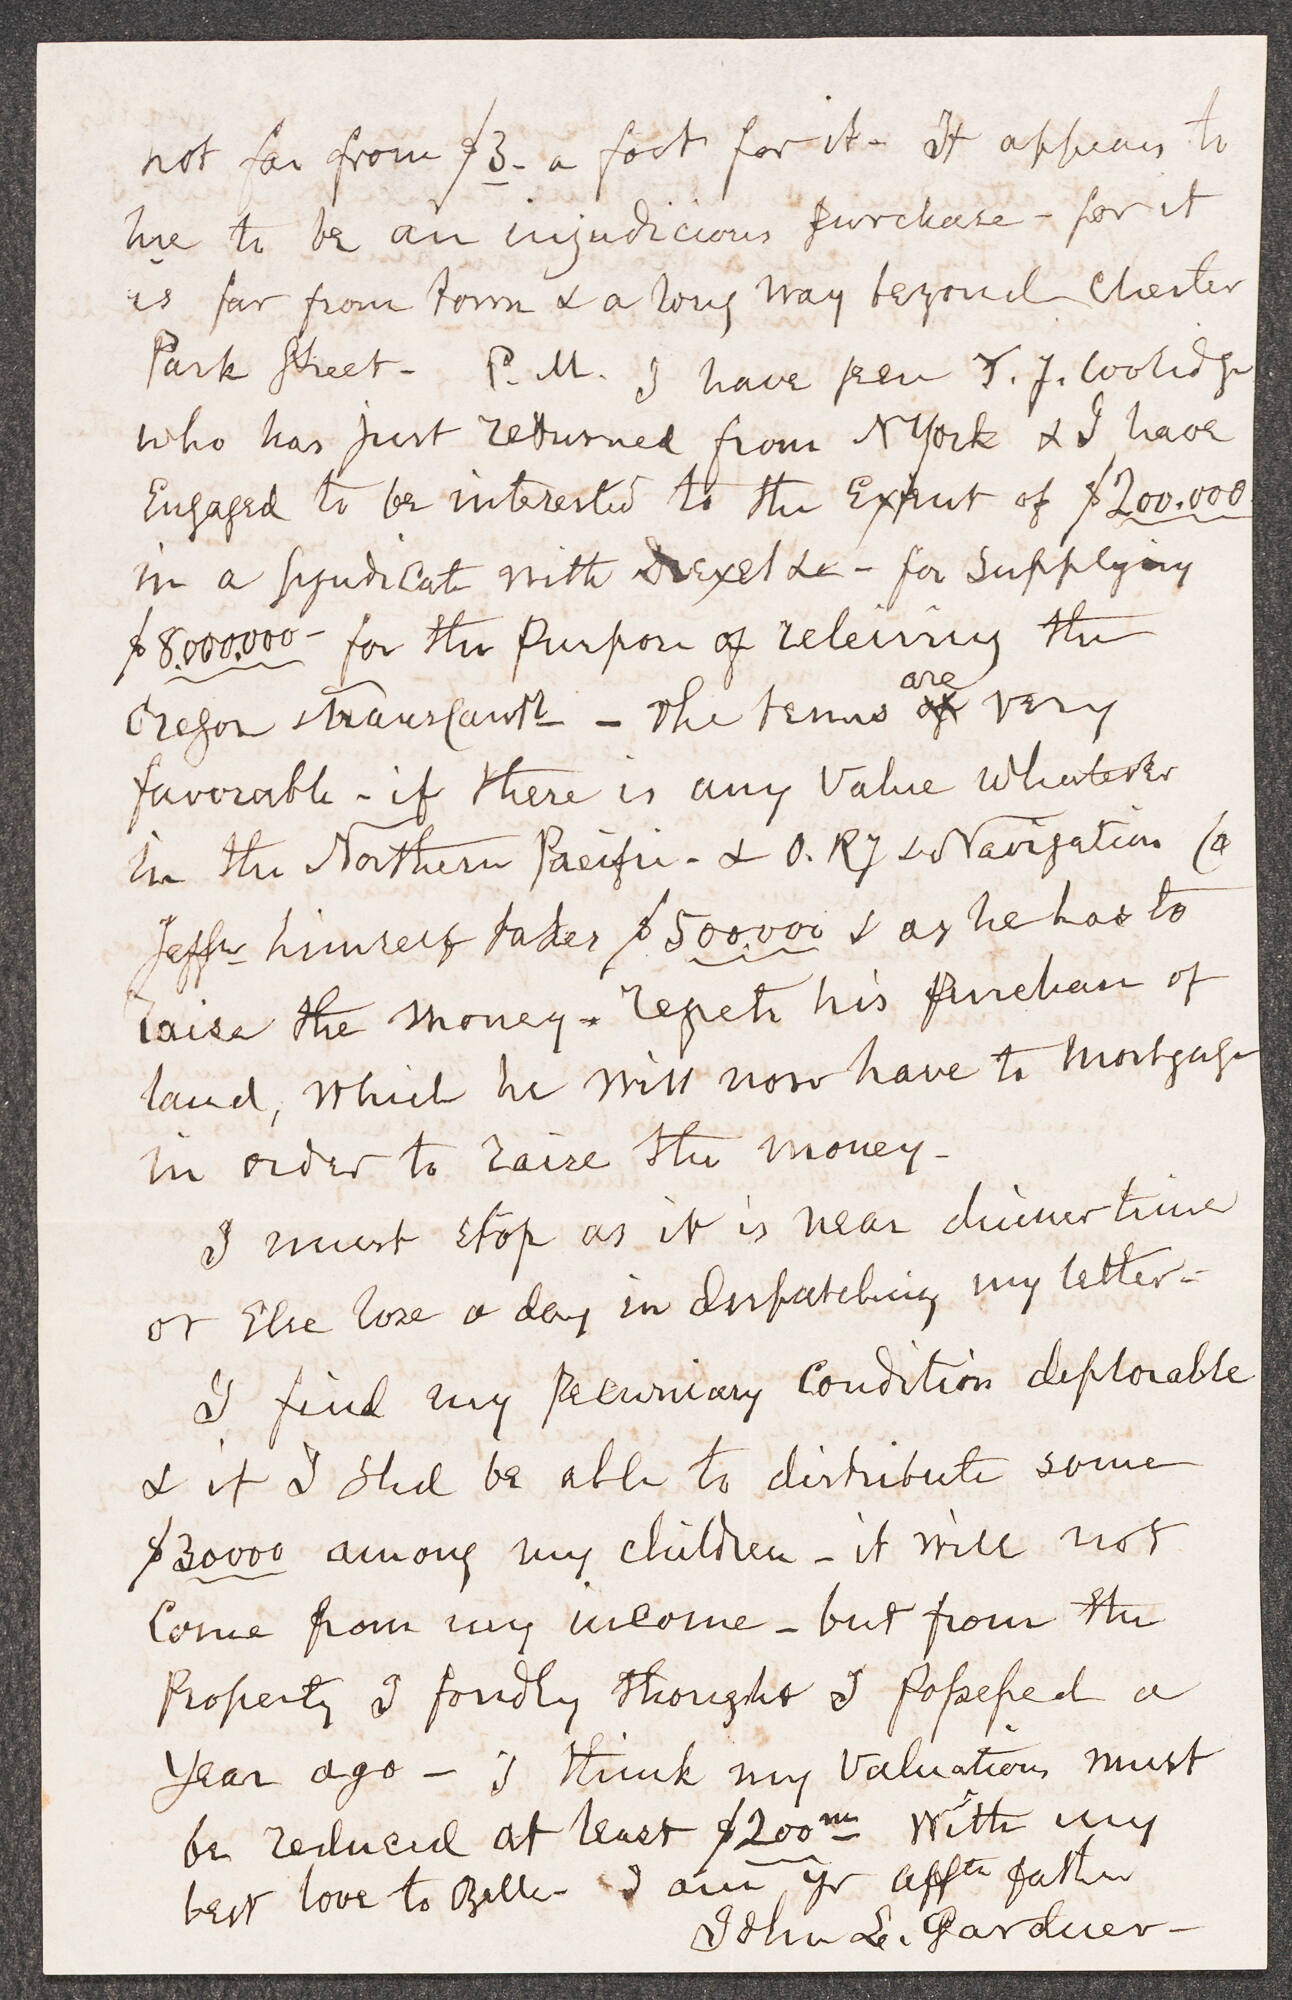 not far from $3- a foot for it- It appears to
me to be an injudicious purchase - for it
is far from town & a long way beyond Chester
Park Street- P.M. I have seen T. J. Coolidge
who has just returned from N York & I have
Engaged to be interested to the Extent of $200.000
in a Syndicate with Drexel &c - for supplying
$8.000.000- for the purpose of releiving the
Oregon Transcontl - the terms are very
favorable - if there is any value whatever
in the Northern Pacific - & O. Ry & Navigation Co
Jeffn himself takes $500000 & as he has to
raise the money - regrets his purchase of
land, which he will now have to mortgage
in order to raise the money -
I must stop as it is near dinner time
or Else lose a day in dispatching my letter -
I find my pecuniary condition deplorable
& if I shd be able to distribute some
$30000 among my children - it will not
come from my income - but from the
Property I fondly thought I possessed a
year ago - I think my valuation must
be reduced at least $200m With my
best love to Belle - I am yr affte father
John L. Gardner -